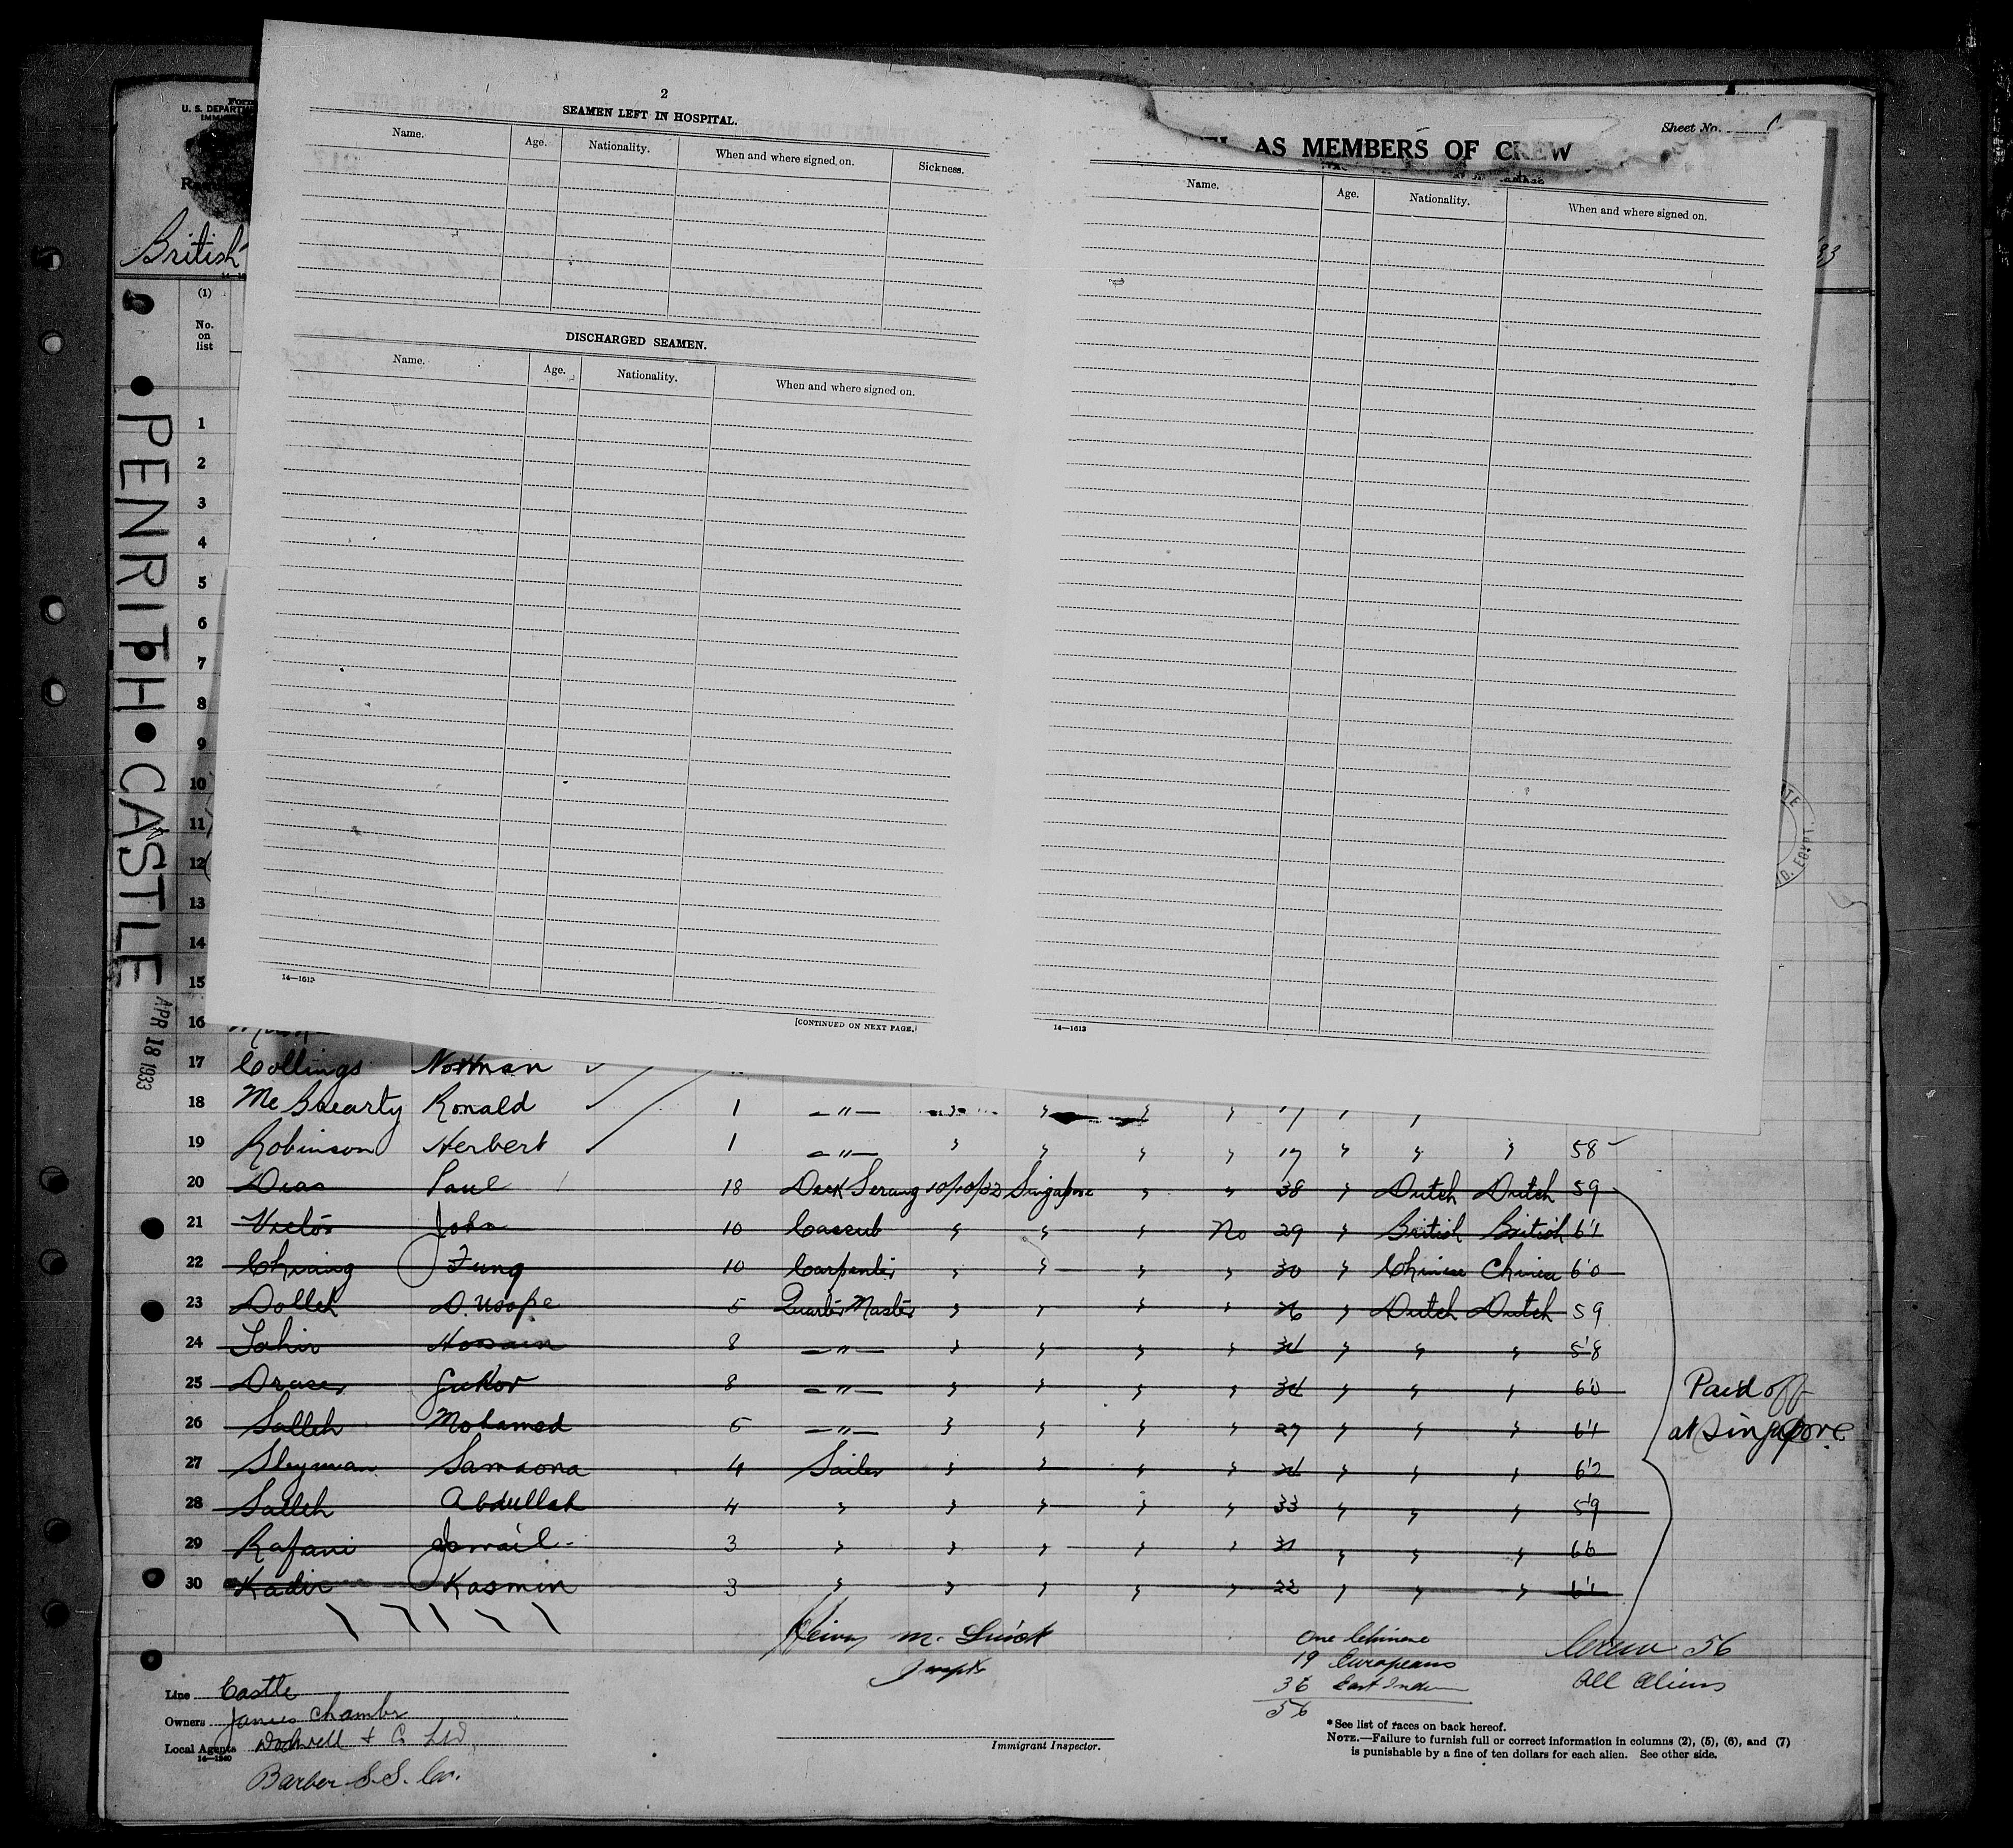 Form
U. S. DEPARTM
IMMI
British
Sheet No.
AS MEMBERS OF CREW
(1)
No.
on
list
PENRITH CASTLE
APR 18 1933
2
SEAMEN LEFT IN HOSPITAL.
Name. Age. Nationality. When and where signed on. Sickness.
DISCHARGED SEAMEN.
Name. Age. Nationality. When and where signed on.
14—1613
[CONTINUED ON NEXT PAGE.]
Name. Age. Nationality. When and where signed on.
14—1613
1
2
3
4
5
6
7
8
9
10
11
12
13
14
15
16
17 Collings Norman
18 Ronald 1 —"—
19 Robinson Herbert 1 —"— " " " " 17 " " " 58
20 Dias Paul 18 Deck Serang 10/10/32 Singapore " " 38 " Dutch Dutch 59
21 Victor John 10 " " " No 29 " British British 61
22 Chiang Fung 10 Carpenter " " " " 30 " Chinese Chinese 60
23 Dolleh 5 Quarter Master " " " " 26 " Dutch Dutch 59
24 Hossain 8 —"— " " " " 34 " " " 58
25 8 —"— " " " " 34 " " " 60
26 Salleh Mohamed 5 —"— " " " " 27 " " " 61
27 Sleyman Samsona 4 Sailor " " " " " " " 62
28 Salleh Abdullah 4 " " " " " 33 " " " 59
29 Rafani Ismail 3 " " " " " 31 " " " 60
30 Kadir Kasmin 3 " " " " " 22 " " " 61
Paid off
at Singapore
One Chinese
19 Europeans
36 East Indian
56
Crew 56
All Aliens
Line Castle
Owners James Chambr
Local Agents Dodwell & Co Ltd
14—1240
Barber S.S. Co.
Immigrant Inspector.
*See list of races on back hereof.
NOTE.—Failure to furnish full or correct information in columns (2), (5), (6), and (7)
is punishable by a fine of ten dollars for each alien. See other side.